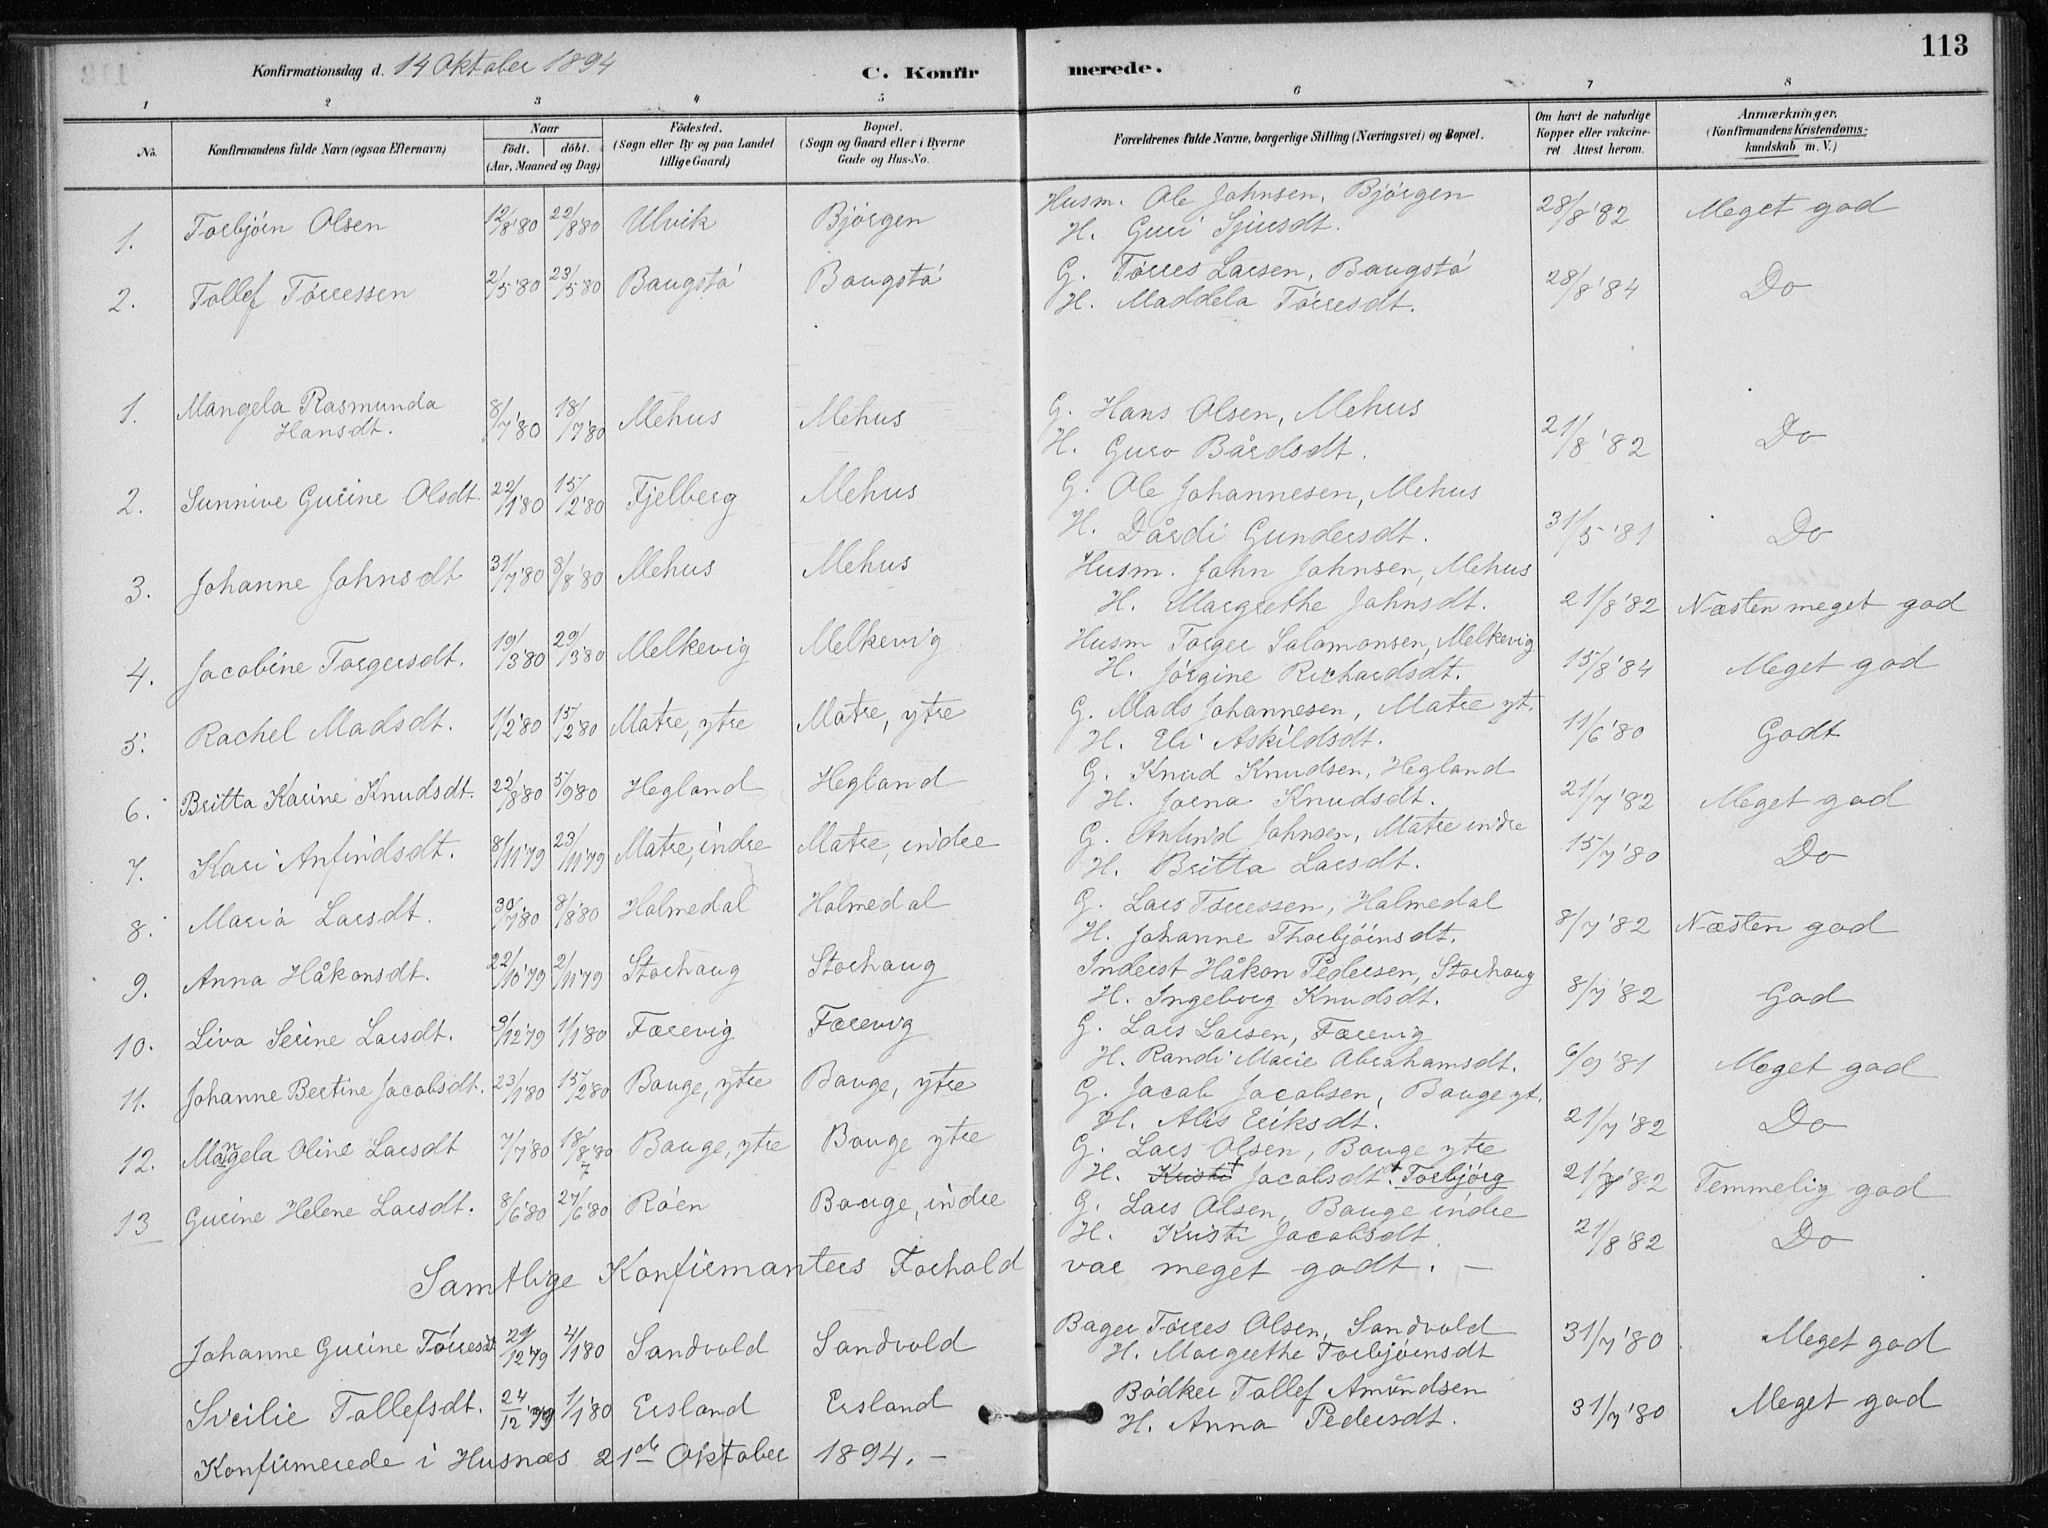 113
Konfirmationsdag d. 14 Oktober 1894
C. Konfirmerede.
1 2 3 4 5 6 7 8
No. Konfirmandens fulde Navn (ogsaa Efternavn) Naar født. døbt. (Aar, Maaned og Dag) Födested. (Sogn eller By og paa Landet tillige Gaard) Bopæl. (Sogn og Gaard eller i Byerne Gade og Hus-No. Forældrenes fulde Navne, borgerlige Stilling (Næringsvei) og Bopæl. Om havt de naturlige Kopper eller vakcineret. Attest herom. Anmærkninger. (Konfirmandens Kristendomskundskab m. V.)
1. Torbjörn Olsen 12/8'80 22/8'80 Ulvik Björgen Husm. Ole Johnsen, Björgen
H. Guri Sjursdt. 28/8'82 Meget god
2. Tollef Törressen 2/5'80 23/5'80 Baugstø Baugstø G. Törres Larsen, Baugstø
H. Maddela Törresdt. 28/8'84 Do
1. Mangela Rasmunda 8/7'80 18/7'80 Mehus Mehus G. Hans Olsen, Mehus
Hansdt. H. Guro Bårdsdt. 21/8'82 Do
2. Sunnive Gurine Olsdt. 22/1'80 15/2'80 Fjelberg Mehus G. Ole Johannesen, Mehus
H. Dårdi Gundersdt. 31/5'81 Do
3. Johanne Johnsdt 31/7'80 8/8'80 Mehus Mehus Husm. John Johnsen, Mehus
H. Margrethe Johnsdt. 21/8'82 Næsten meget god
4. Jacobine Torgersdt. 19/3'80 29/3'80 Melkevig Melkevig Husm Torger Salamonsen, Melkevig
H. Jörgine Richardsdt. 15/8'84 Meget god
5. Rachel Madsdt. 1/2'80 15/2'80 Matre, ytre Matre, ytre G. Mads Johannesen, Matre yt.
H. Eli Askildsdt. 11/6'80 Godt
6. Britta Karine Knudsdt. 22/8'80 5/9'80 Hegland Hegland G. Knud Knudsen, Hegland
H. Jorna Knudsdt. 21/7'82 Meget god
7. Kari Anfindsdt. 8/11'79 23/11'79 Matre, indre Matre, indre G. Anfind Johnsen, Matre indre
H. Britta Larsdt. 15/7'80 Do
8. Maria Larsdt. 30/7'80 8/8'80 Holmedal Holmedal G. Lars Törressen, Holmedal
H. Johanne Thorbjörnsdt. 8/7'82 Næsten god
9. Anna Håkonsdt. 22/10'79 2/11'79 Storhaug Storhaug Inderst Håkon Pedersen, Storhaug
H. Ingeborg Knudsdt. 8/7'82 God
10. Liva Serine Larsdt. 9/12'79 1/1'80 Færevig Færevig G. Lars Larsen, Færevig
H. Randi Marie Abrahamsdt. 6/9'81 Meget god
11. Johanne Bertine Jacobsdt. 23/1'80 15/2'80 Bauge, ytre Bauge, ytre G. Jacob Jacobsen, Bauge yt.
H. Alis Eriksdt. 21/7'82 Do
12. Mangela Oline Larsdt 7/7'80 18/8'80 7 Bauge, ytre Bauge, ytre G. Lars Olsen, Bauge ytre
H. Kristi+ Jacobsdt.+ Torbjörg 21/7'82 Temmelig god
13 Gurine Helene Larsdt. 8/6'80 27/6'80 Röen Bauge, indre G. Lars Olsen, Bauge indre
H. Kristi Jacobsdt. 21/8'82 Do
Samtlige Konfirmanters Forhold var meget godt. —
Johanne Gurine Törresdt 29/12'79 4/1'80 Sandvold Sandvold Bager Törres Olsen, Sandvold
H. Margrethe Torbjörnsdt 31/7'80 Meget god
Sicilie Tollefsdt. 24/12'79 1/1'80 Ersland Ersland Bödker Tollef Amundsen
H. Anna Pedersdt. 31/7'80 Meget god
Konfirmerede i Husnæs 21de Oktober 1894. —